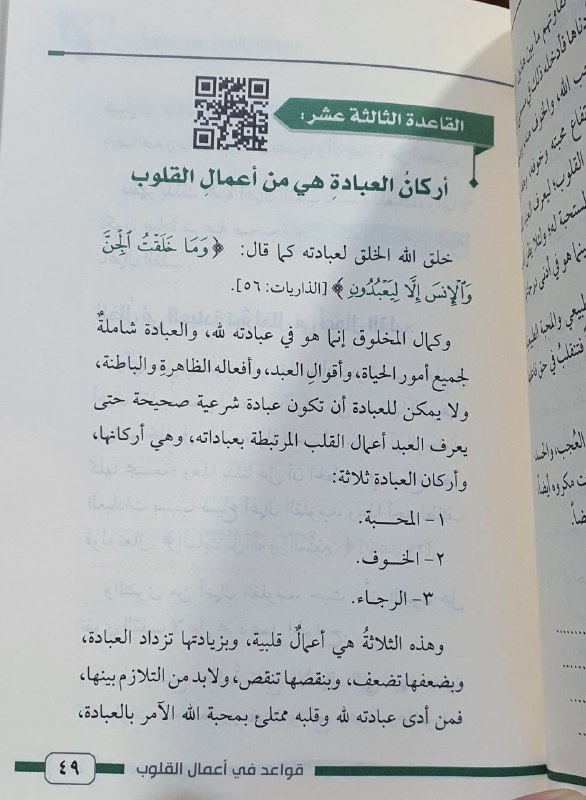 القاعدة الثالثة عشر:
أركانُ العبادةِ هي من أعمالِ القلوب
خلق الله الخلق لعبادته كما قال: ﴿وَمَا خَلَقْتُ ٱلْجِنَّ
وَٱلْإِنسَ إِلَّا لِيَعْبُدُونِ﴾ [الذاريات: ٥٦].
وكمال المخلوق إنما هو في عبادته لله، والعبادة شاملةٌ
لجميع أمور الحياة، وأقوالِ العبد، وأفعاله الظاهرةِ والباطنة،
ولا يمكن للعبادة أن تكون عبادة شرعية صحيحة حتى
يعرف العبد أعمال القلب المرتبطة بعباداته، وهي أركانها،
وأركان العبادة ثلاثة:
١- المحـبـة.
٢- الخـوف.
٣- الرجـاء.
وهذه الثلاثةُ هي أعمالٌ قلبية، وبزيادتها تزداد العبادة،
وبضعفها تضعف، وبنقصها تنقص، ولابد من التلازم بينها،
فمن أدى عبادته لله وقلبه ممتلئ بمحبة الله الآمر بالعبادة،
قواعد في أعمال القلوب ٤٩